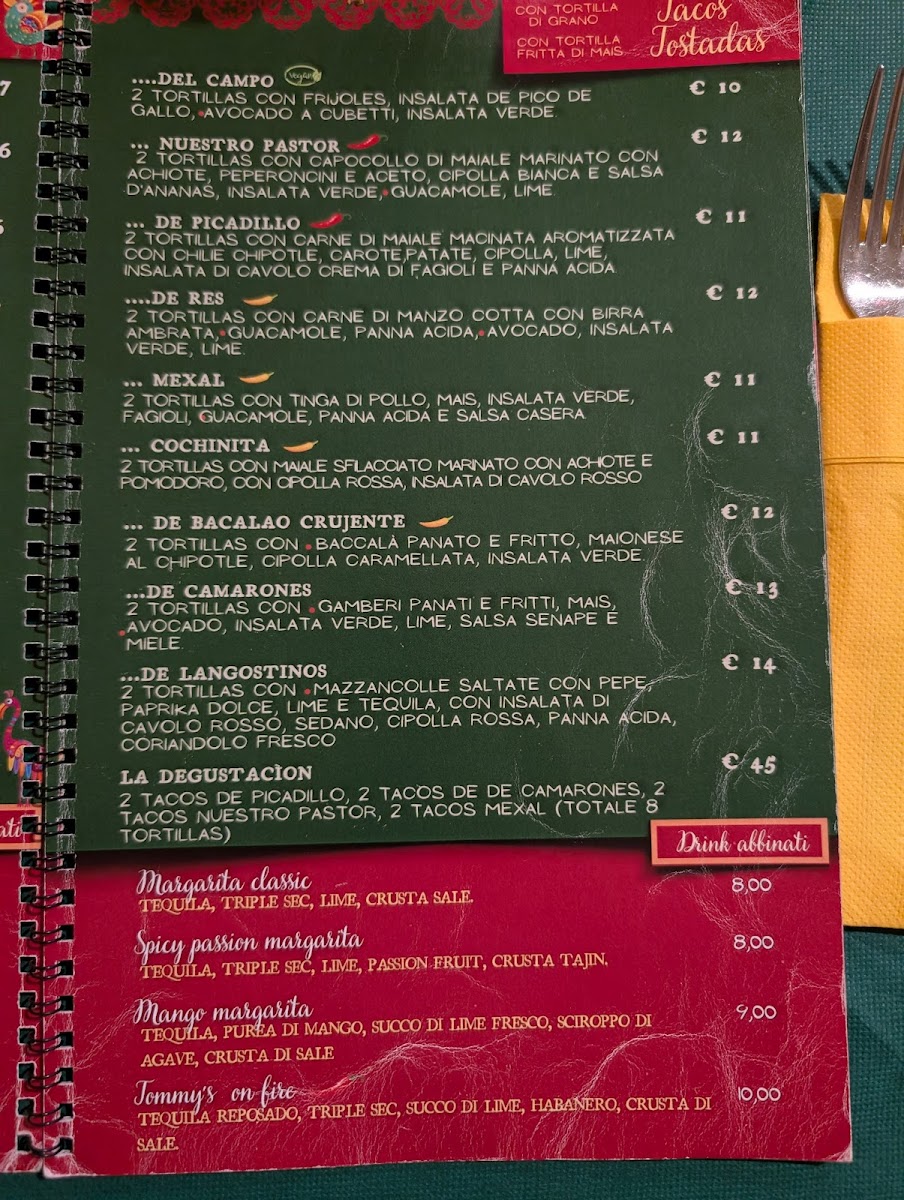 CON TORTILLA
DI GRANO
Tacos
CON TORTILLA
FRITTA DI MAIS
Tostadas
....DEL CAMPO Vegan € 10
2 TORTILLAS CON FRIJOLES, INSALATA DE PICO DE
GALLO, AVOCADO A CUBETTI, INSALATA VERDE.
... NUESTRO PASTOR € 12
2 TORTILLAS CON CAPOCOLLO DI MAIALE MARINATO CON
ACHIOTE, PEPERONCINI E ACETO, CIPOLLA BIANCA E SALSA
D'ANANAS, INSALATA VERDE, GUACAMOLE, LIME
... DE PICADILLO € 11
2 TORTILLAS CON CARNE DI MAIALE MACINATA AROMATIZZATA
CON CHILIE CHIPOTLE, CAROTE,PATATE, CIPOLLA, LIME,
INSALATA DI CAVOLO CREMA DI FAGIOLI E PANNA ACIDA
....DE RES € 12
2 TORTILLAS CON CARNE DI MANZO COTTA CON BIRRA
AMBRATA, GUACAMOLE, PANNA ACIDA, AVOCADO, INSALATA
VERDE, LIME.
... MEXAL € 11
2 TORTILLAS CON TINGA DI POLLO, MAIS, INSALATA VERDE,
FAGIOLI, GUACAMOLE, PANNA ACIDA E SALSA CASERA
... COCHINITA € 11
2 TORTILLAS CON MAIALE SFILACCIATO MARINATO CON ACHIOTE E
POMODORO, CON CIPOLLA ROSSA, INSALATA DI CAVOLO ROSSO
... DE BACALAO CRUJENTE € 12
2 TORTILLAS CON BACCALÀ PANATO E FRITTO, MAIONESE
AL CHIPOTLE, CIPOLLA CARAMELLATA, INSALATA VERDE.
...DE CAMARONES € 13
2 TORTILLAS CON GAMBERI PANATI E FRITTI, MAIS,
AVOCADO, INSALATA VERDE, LIME, SALSA SENAPE E
MIELE.
...DE LANGOSTINOS € 14
2 TORTILLAS CON MAZZANCOLLE SALTATE CON PEPE,
PAPRIKA DOLCE, LIME E TEQUILA, CON INSALATA DI
CAVOLO ROSSO, SEDANO, CIPOLLA ROSSA, PANNA ACIDA,
CORIANDOLO FRESCO
LA DEGUSTACÌON € 45
2 TACOS DE PICADILLO, 2 TACOS DE DE CAMARONES, 2
TACOS NUESTRO PASTOR, 2 TACOS MEXAL (TOTALE 8
TORTILLAS)
Drink abbinati
Margarita classic 8,00
TEQUILA, TRIPLE SEC, LIME, CRUSTA SALE.
Spicy passion margarita 8,00
TEQUILA, TRIPLE SEC, LIME, PASSION FRUIT, CRUSTA TAJIN.
Mango margarita 9,00
TEQUILA, PUREA DI MANGO, SUCCO DI LIME FRESCO, SCIROPPO DI
AGAVE, CRUSTA DI SALE
Tommy's on fire 10,00
TEQUILA REPOSADO, TRIPLE SEC, SUCCO DI LIME, HABANERO, CRUSTA DI
SALE.